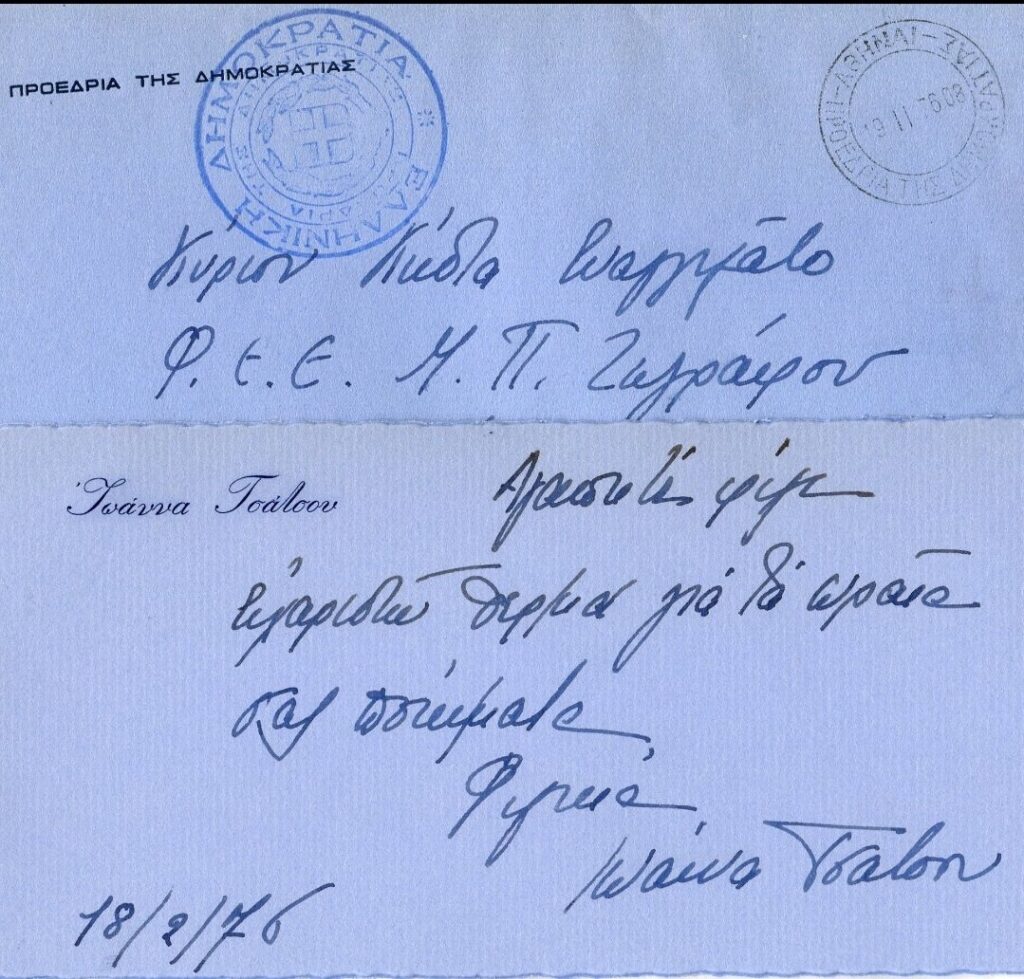 ΠΡΟΕΔΡΙΑ ΤΗΣ ΔΗΜΟΚΡΑΤΙΑΣ
ΕΛΛΗΝΙΚΗ ΔΗΜΟΚΡΑΤΙΑ
ΑΘΗΝΑΙ - ΠΡΟΕΔΡΙΑ ΤΗΣ ΔΗΜΟΚΡΑΤΙΑΣ
19 II 76 08
Κύριον Κώστα Ευαγγελάτο
Φ.Ε.Ε. Μ. Π. Ζωγράφου
Ἰωάννα Τσάτσου
Αγαπητέ φίλε
Ευχαριστώ θερμά γιά τά ωραία
σας ποιήματα
Φιλικά
Ιωάννα Τσάτσου
18/2/76